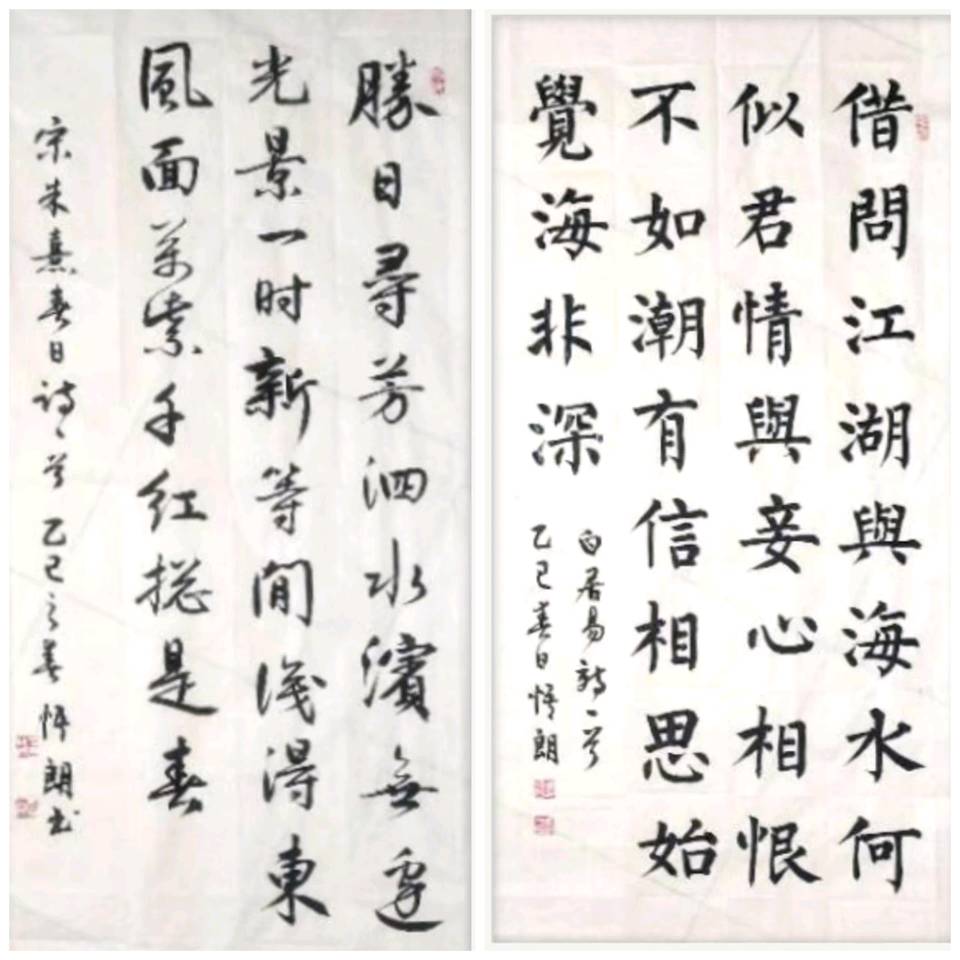 借問江湖與海水何
似君情與妾心相恨
不如潮有信相思始
覺海非深
白居易詩一首
乙巳春日悟朗
勝日尋芳泗水濱無邊
光景一时新等閒識得東
風面萬紫千红總是春
宋朱熹春日詩一首 乙巳之春 悟朗书